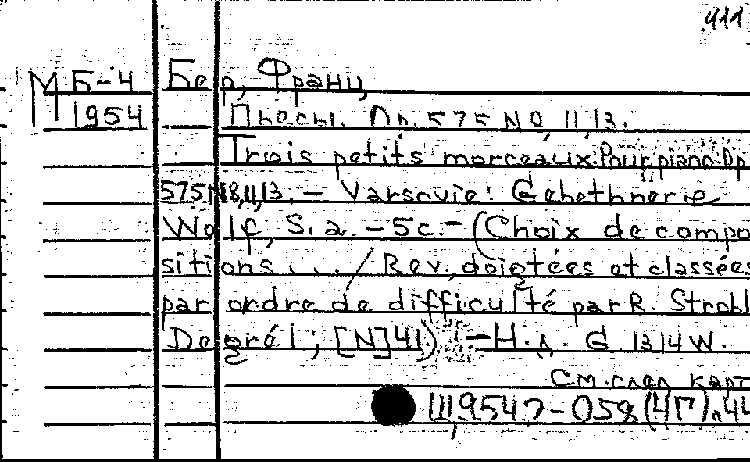 411
М Б-4 Бер, Франц
1954 Пьесы. Op. 575 No, 11, 13.
Trois petits morceaux. Pour piano. Op.
575 N 8, 11, 13. — Varsovie: Gebethner e
Wolf, S. a. - 5 c. - (Choix de compo
sitions . . . / Rev, doigtées et classées
par ordre de difficulté par R. Strobl
Degré I ; [N] 41) - Н. д. G 1314 W.
См. след карт
Ш 9547-058 (4Г). 44